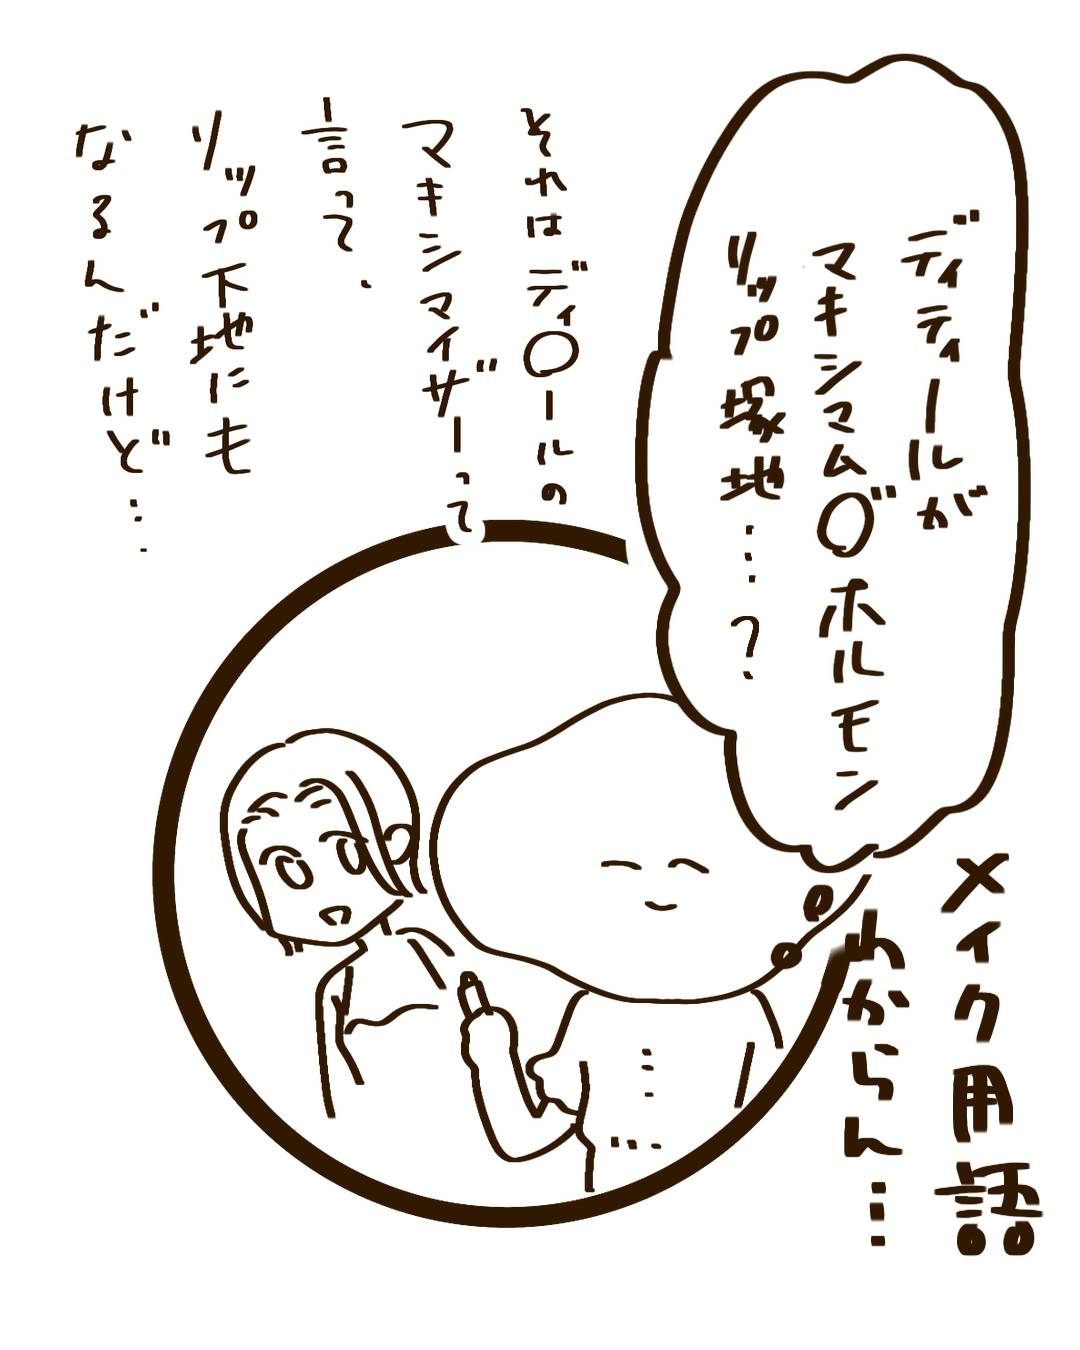 ディティールが
マキシマム〇゛ホルモン
リップ塚地…？
メイク用語
わからん…
それはディ〇ールの
マキシマイザーって
言って、
リップ下地にも
なるんだけど…